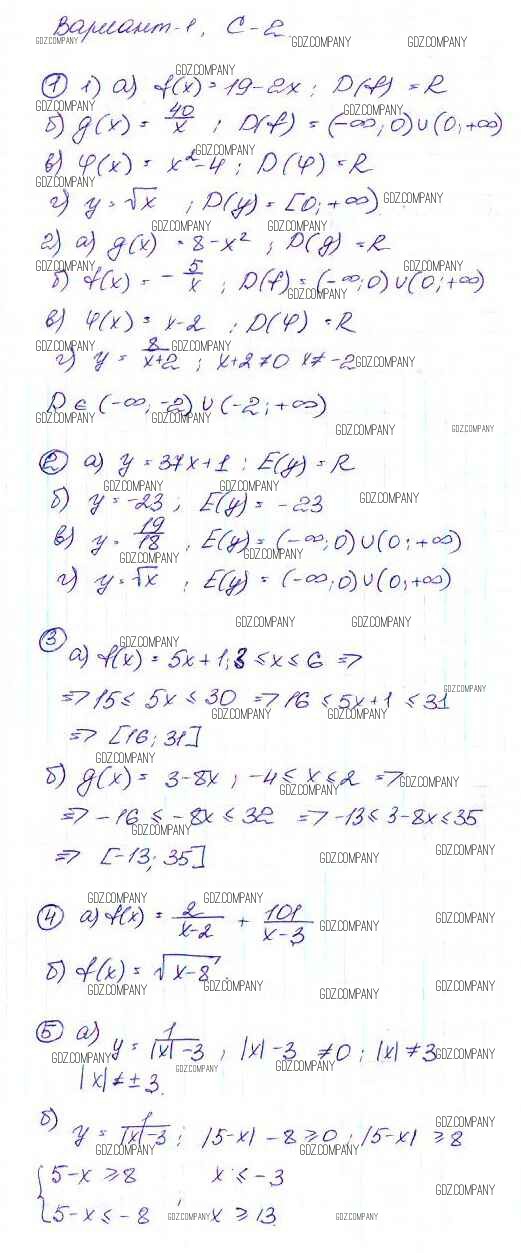 Вариант-1, С-2
① 1) а) f(x) = 19-2x ; D(f) = R
б) g(x) = 40/x ; D(f) = (-∞; 0) ∪ (0; +∞)
в) φ(x) = x²-4 ; D(φ) = R
г) y = √x ; D(y) = [0; +∞)
2) а) g(x) = 8-x² ; D(g) = R
б) f(x) = -5/x ; D(f) = (-∞; 0) ∪ (0; +∞)
в) φ(x) = x-2 ; D(φ) = R
г) y = 8/(x+2) ; x+2≠0 x≠-2
D ∈ (-∞; -2) ∪ (-2; +∞)
② а) y = 37x+1 ; E(y) = R
б) y = -23 ; E(y) = -23
в) y = 19/18 , E(y) = (-∞; 0) ∪ (0; +∞)
г) y = √x ; E(y) = (-∞; 0) ∪ (0; +∞)
③ а) f(x) = 5x+1; 3 ≤ x ≤ 6 =>
=> 15 ≤ 5x ≤ 30 => 16 ≤ 5x+1 ≤ 31
=> [16; 31]
б) g(x) = 3-8x ; -4 ≤ x ≤ 2 =>
=> -16 ≤ -8x ≤ 32 => -13 ≤ 3-8x ≤ 35
=> [-13; 35]
④ а) f(x) = 2/(x-2) + 101/(x-3)
б) f(x) = √(x-8)
⑤ а) y = 1/(|x|-3) , |x|-3 ≠0 ; |x| ≠3
|x| ≠ ±3
б) y = 1/(|x|-3) ; |5-x| - 8 ≥ 0 ; |5-x| ≥ 8
{ 5-x ≥ 8 x ≤ -3
5-x ≤ -8 ; x ≥ 13
GDZ.COMPANY